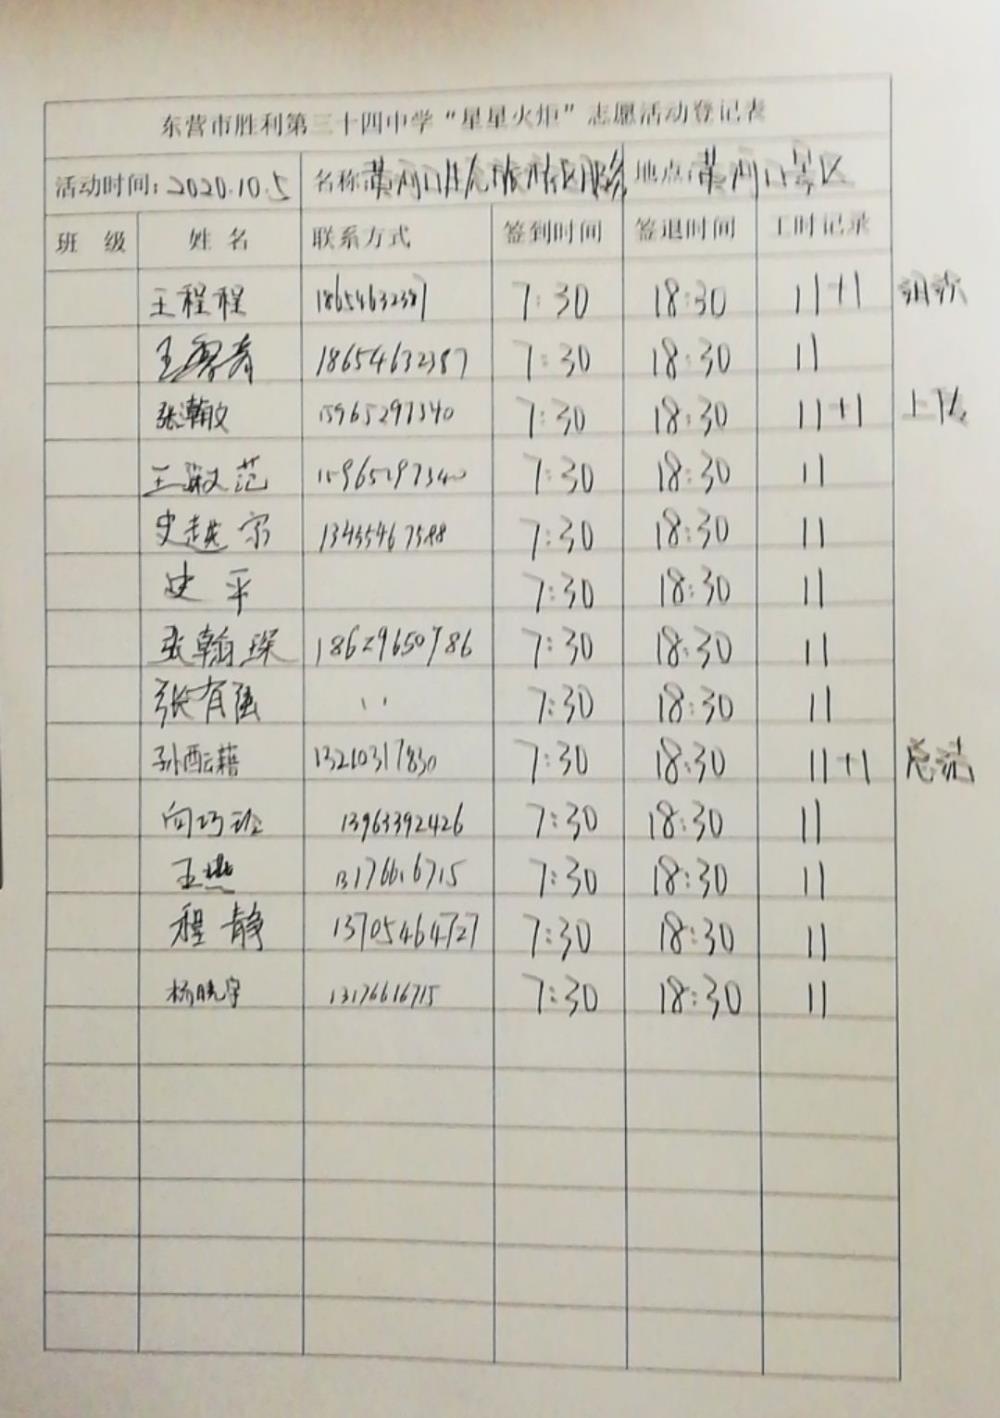 东营市胜利第三十四中学“星星火炬”志愿活动登记表
活动时间：2020.10.5 名称 黄河口 地点 黄河口景区
班 级 姓 名 联系方式 签到时间 签退时间 工时记录
王程程 18654632387 7:30 18:30 11+1 组织
王 18654632387 7:30 18:30 11
张瀚文 15965297340 7:30 18:30 11+1 上传
王淑范 15965297340 7:30 18:30 11
史越 7:30 18:30 11
史平 7:30 18:30 11
张翰琛 18629650786 7:30 18:30 11
张有强 〃 7:30 18:30 11
孙酝藉 13210317830 7:30 18:30 11+1 总结
向巧 13963392426 7:30 18:30 11
王燕 13176616715 7:30 18:30 11
程静 13705464727 7:30 18:30 11
杨晓宇 13176616715 7:30 18:30 11